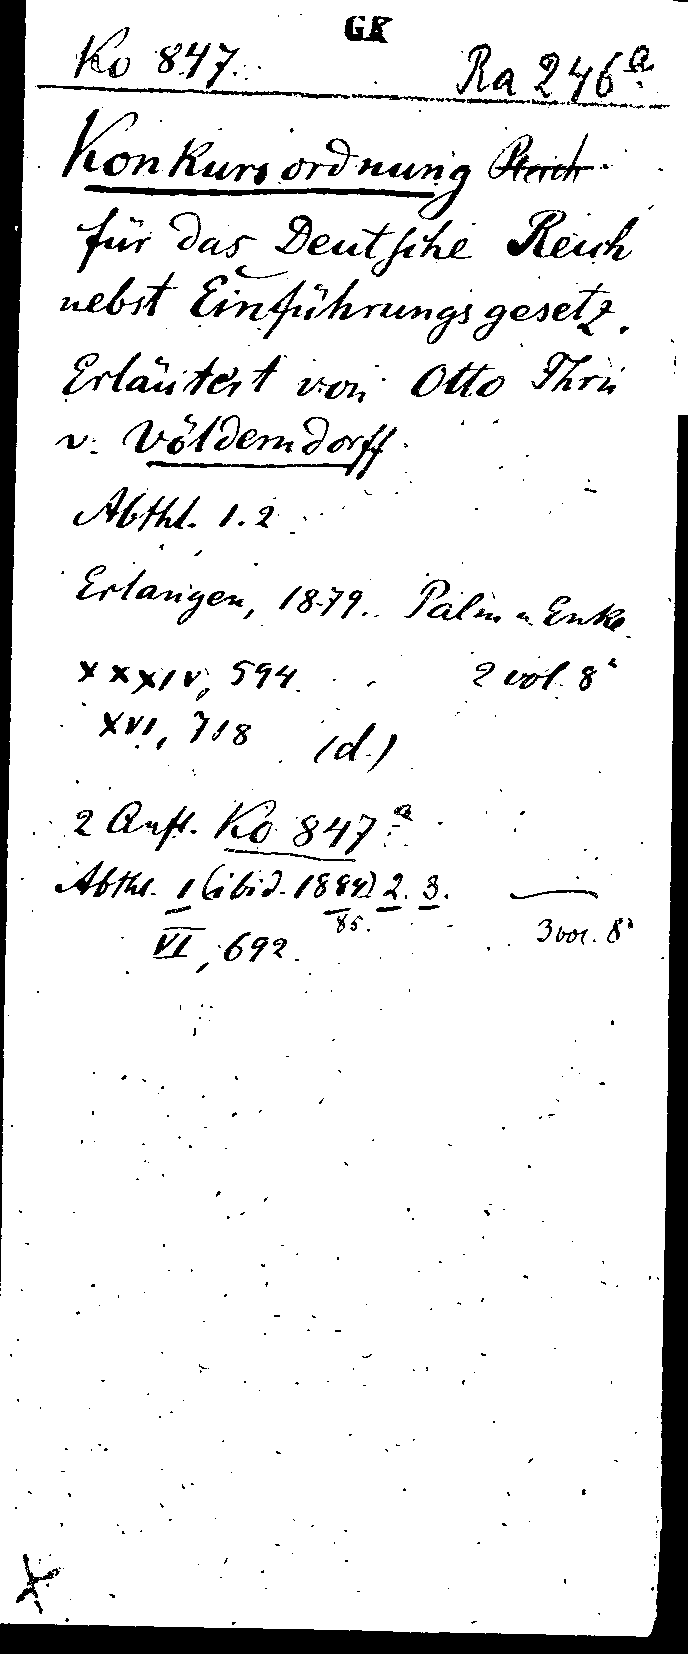 GK
Ko 847. Ra 246a.
Konkursordnung Reich
für das Deutsche Reich
nebst Einführungsgesetz.
Erläutert von Otto Fhrn
v. Völderndorff
Abthl. 1.2
Erlangen, 1879. Palm u Enke
XXXIV, 594. 2 vol. 8°
XVI, 718 (d.)
2 Aufl. Ko 847a
Abthl. 1 (ibid. 1884) 2. 3. —
85.
VI, 692. 3 vol. 8°
X